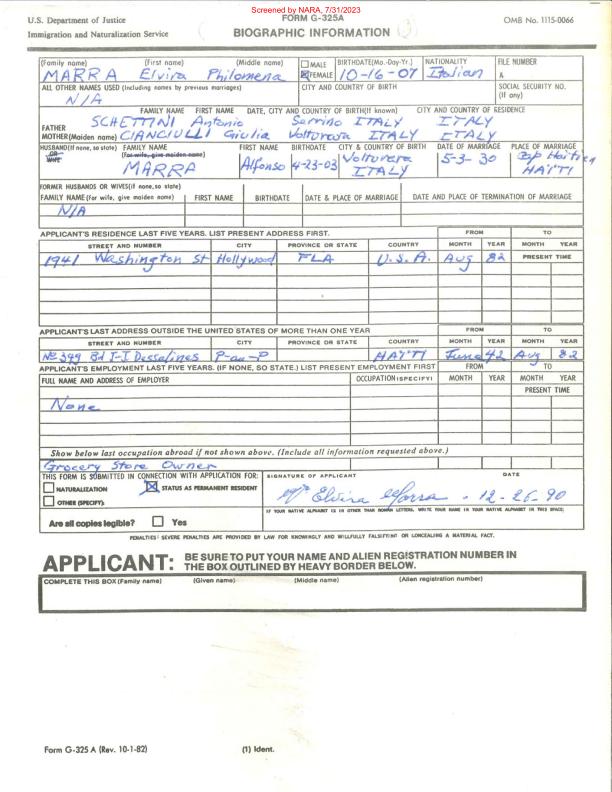 Screened by NARA, 7/31/2023
U.S. Department of Justice
FORM G-325A
OMB No. 1115-0066
Immigration and Naturalization Service
BIOGRAPHIC INFORMATION
3
(Family name) (First name) (Middle name) MALE BIRTHDATE(Mo.-Day-Yr.) NATIONALITY FILE NUMBER
MARRA Elvira Philomena FEMALE 10-16-07 Italian A
ALL OTHER NAMES USED (Including names by previous marriages) CITY AND COUNTRY OF BIRTH SOCIAL SECURITY NO. (If any)
N/A
FAMILY NAME FIRST NAME DATE, CITY AND COUNTRY OF BIRTH(If known) CITY AND COUNTRY OF RESIDENCE
FATHER SCHETTINI Antonio Serrino ITALY ITALY
MOTHER(Maiden name) CIANCIULLI Giulia Volturara ITALY ITALY
HUSBAND(If none, so state) FAMILY NAME FIRST NAME BIRTHDATE CITY & COUNTRY OF BIRTH DATE OF MARRIAGE PLACE OF MARRIAGE
OR WIFE (For wife, give maiden name)
MARRA Alfonso 4-23-03 Volturara ITALY 5-3-30 Cap Haitien HAITI
FORMER HUSBANDS OR WIVES(if none,so state)
FAMILY NAME(For wife, give maiden name) FIRST NAME BIRTHDATE DATE & PLACE OF MARRIAGE DATE AND PLACE OF TERMINATION OF MARRIAGE
N/A
APPLICANT'S RESIDENCE LAST FIVE YEARS. LIST PRESENT ADDRESS FIRST. FROM TO
STREET AND NUMBER CITY PROVINCE OR STATE COUNTRY MONTH YEAR MONTH YEAR
1941 Washington St Hollywood FLA U.S.A. Aug 82 PRESENT TIME
APPLICANT'S LAST ADDRESS OUTSIDE THE UNITED STATES OF MORE THAN ONE YEAR FROM TO
STREET AND NUMBER CITY PROVINCE OR STATE COUNTRY MONTH YEAR MONTH YEAR
No 399 Bd J-J Dessalines P-au-P HAITI June 42 Aug 82
APPLICANT'S EMPLOYMENT LAST FIVE YEARS. (IF NONE, SO STATE.) LIST PRESENT EMPLOYMENT FIRST FROM TO
FULL NAME AND ADDRESS OF EMPLOYER OCCUPATION(SPECIFY) MONTH YEAR MONTH YEAR
PRESENT TIME
None
Show below last occupation abroad if not shown above. (Include all information requested above.)
Grocery Store Owner
THIS FORM IS SUBMITTED IN CONNECTION WITH APPLICATION FOR: SIGNATURE OF APPLICANT DATE
NATURALIZATION STATUS AS PERMANENT RESIDENT
Elvira Marra . 12-26-90
OTHER (SPECIFY):
IF YOUR NATIVE ALPHABET IS IN OTHER THAN ROMAN LETTERS, WRITE YOUR NAME IN YOUR NATIVE ALPHABET IN THIS SPACE:
Are all copies legible? Yes
PENALTIES: SEVERE PENALTIES ARE PROVIDED BY LAW FOR KNOWINGLY AND WILLFULLY FALSIFYING OR CONCEALING A MATERIAL FACT.
APPLICANT: BE SURE TO PUT YOUR NAME AND ALIEN REGISTRATION NUMBER IN
THE BOX OUTLINED BY HEAVY BORDER BELOW.
COMPLETE THIS BOX (Family name) (Given name) (Middle name) (Alien registration number)
Form G-325 A (Rev. 10-1-82) (1) Ident.